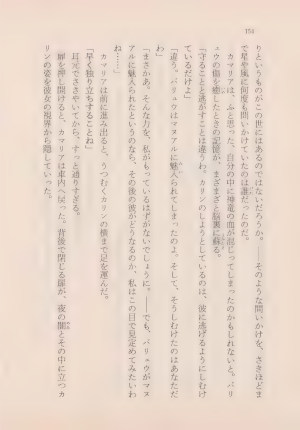 150
りというものがこの世にはあるのではないだろうか。――そのような問いかけを、さきほどま
で星や風に何度も問いかけていたのは誰だったのだ。
カマリアは、ふと思った。自分の中に神竜の血が混じってしまったのかもしれないと。バリ
ュウの傷を癒したときの記憶が、まざまざと脳裏に蘇る。
「守ることと逃がすことは違うわ。カリンのしようとしているのは、彼に逃げるようにしむけ
ているだけよ」
「違う。バリュウはマヌアルに魅入られてしまったのよ。そして、そうしむけたのはあなただ
わ」
「まさかあ。そんな力を、私がもっているはずがないでしょうに。――でも、バリュウがマヌ
アルに魅入られたというのなら、その後の彼がどうなるのか、私はこの目で見定めてみたいわ
ね……」
カマリアは前に進み出ると、うつむくカリンの横まで足を運んだ。
耳元でささやいてから、すっと通りすぎる。
「早く独り立ちすることね」
扉を押し開けると、カマリアは車内へ戻った。背後で閉じる扉が、夜の闇とその中に立つカ
リンの姿を彼女の視界から隠していった。